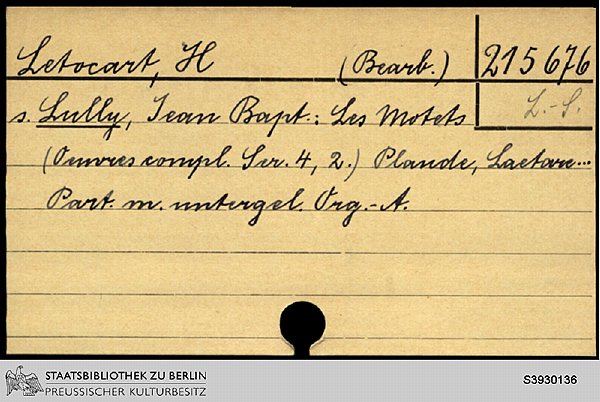 Letocart, H (Bearb.) 215676
s. Lully, Jean Bapt.: Les Motets L.-S.
(Oeuvres compl. Ser. 4, 2.) Plaude, Laetare...
Part. m. untergel. Org.-A.
STAATSBIBLIOTHEK ZU BERLIN
PREUSSISCHER KULTURBESITZ
S3930136